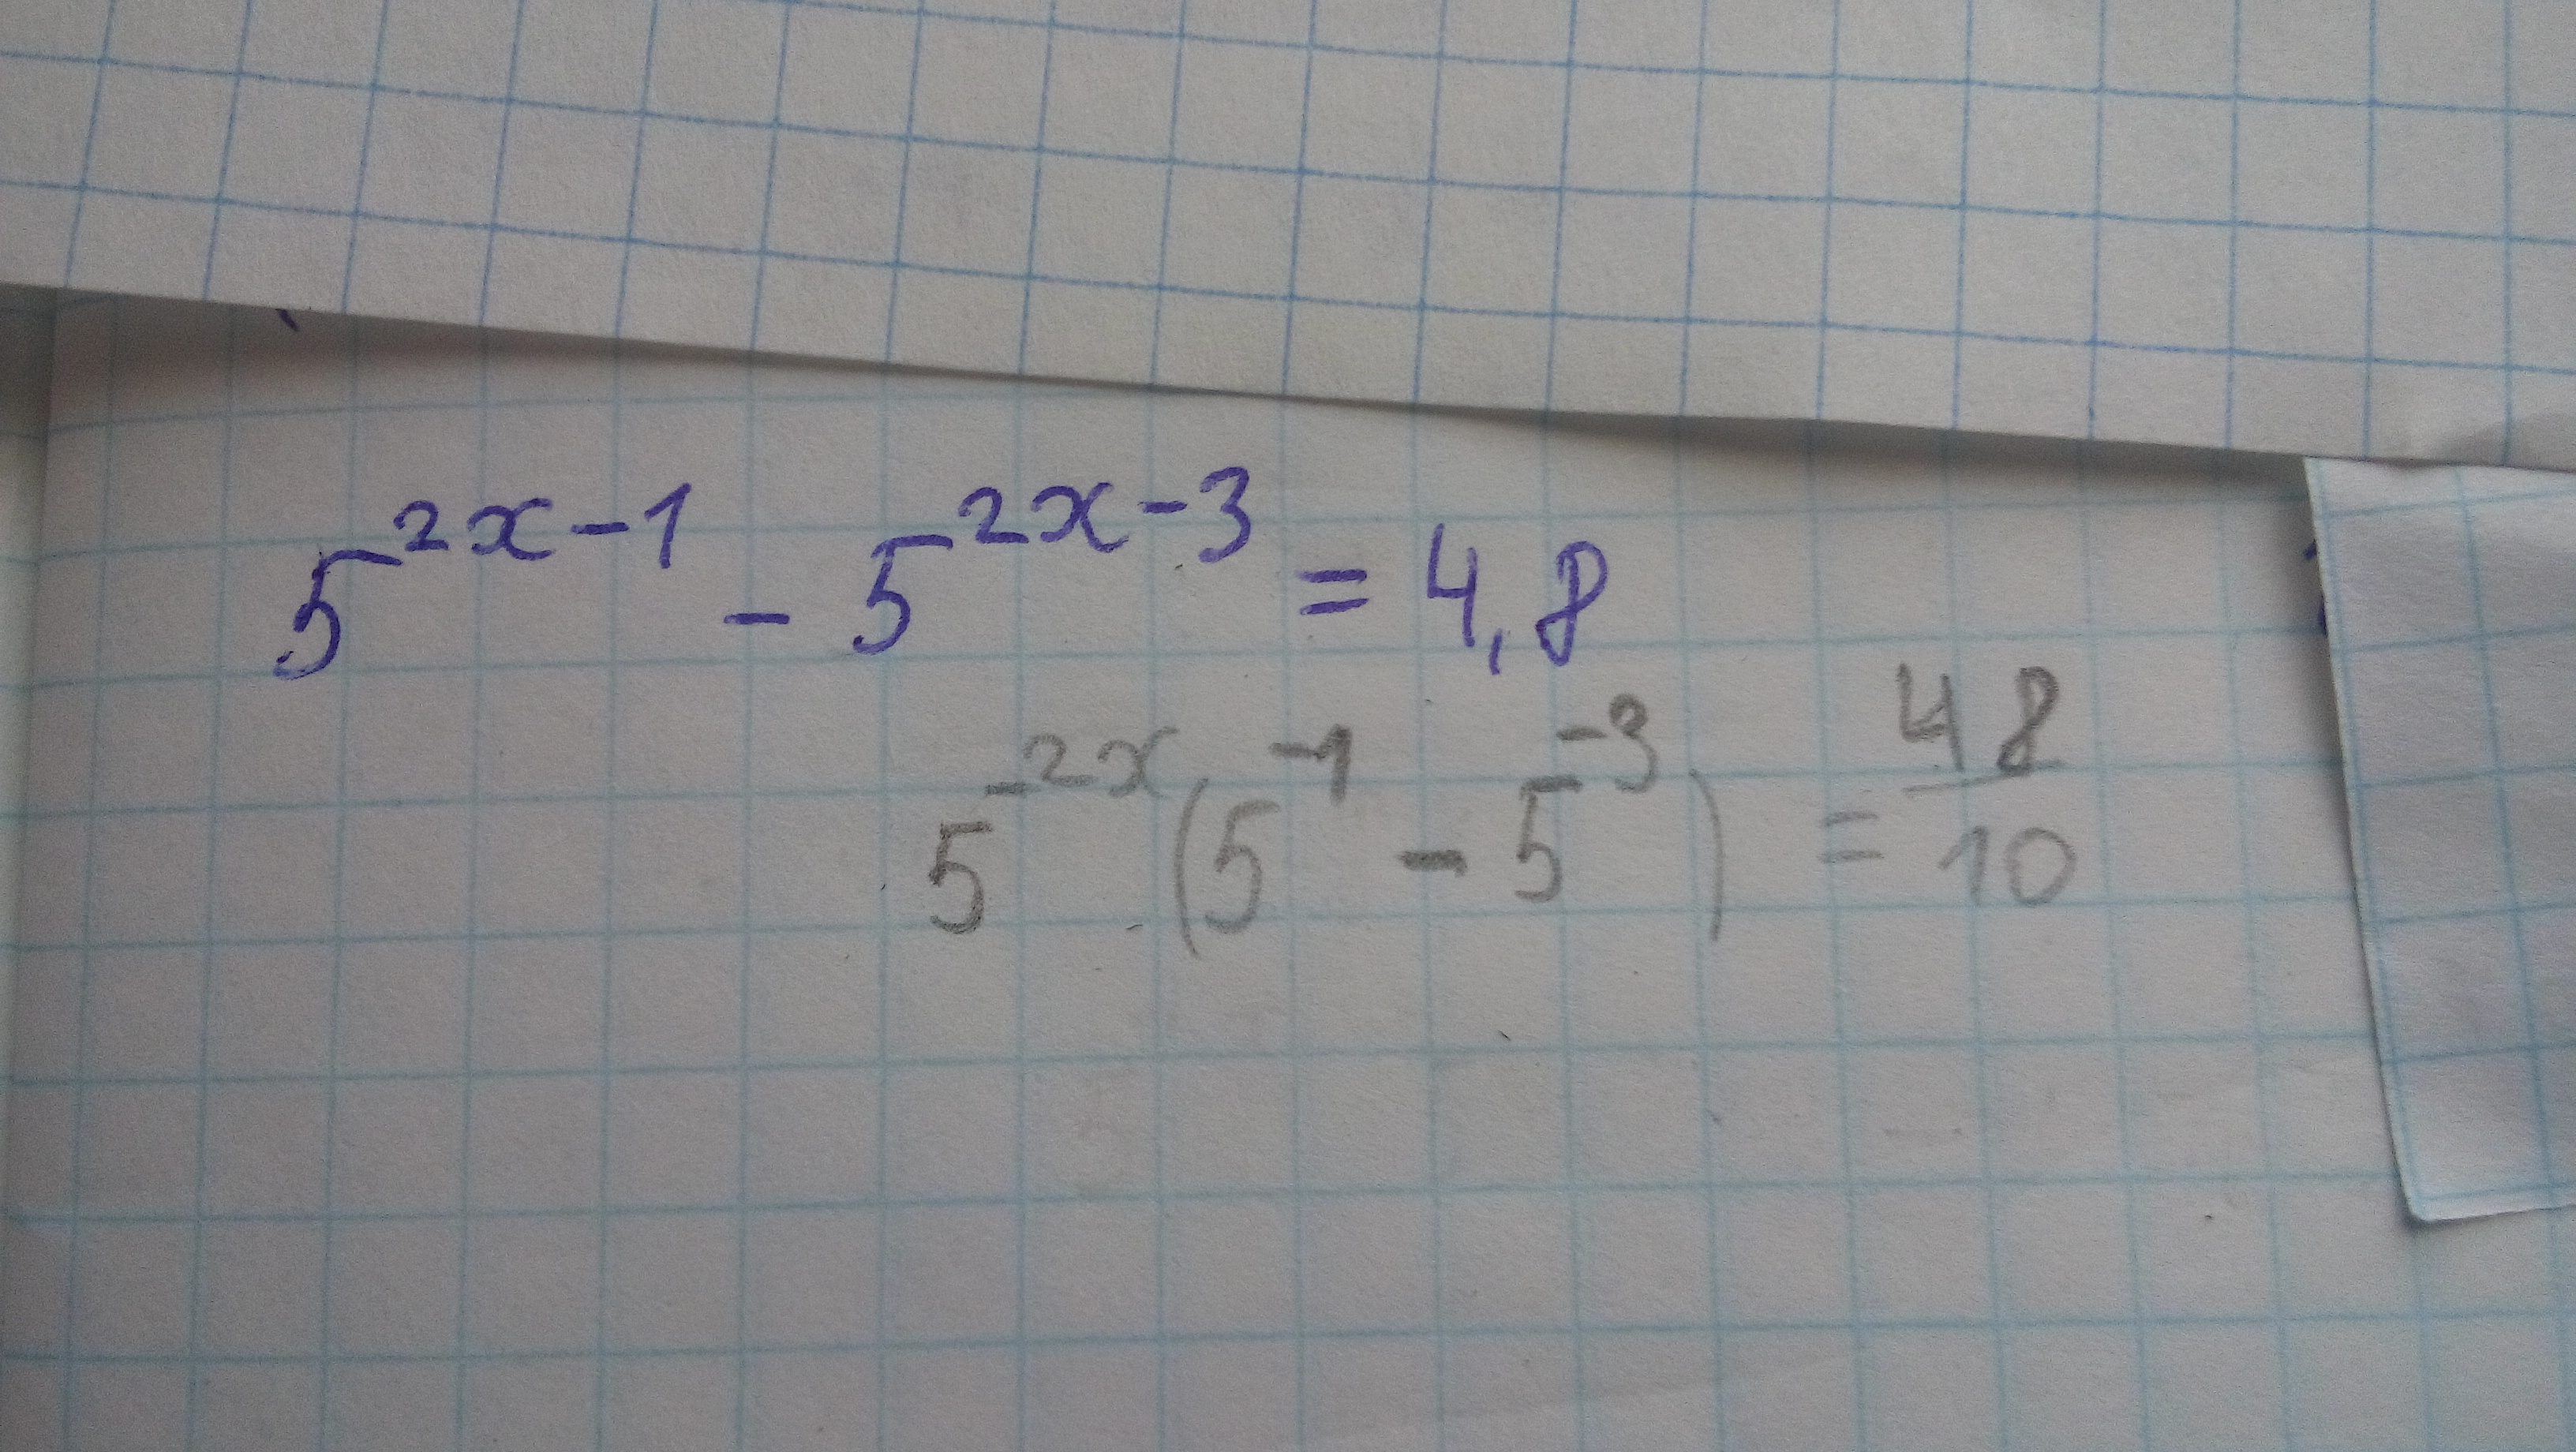 5^{2x-1} - 5^{2x-3} = 4,8
5^{-2x}(5^{-1} - 5^{-3}) = \frac{48}{10}